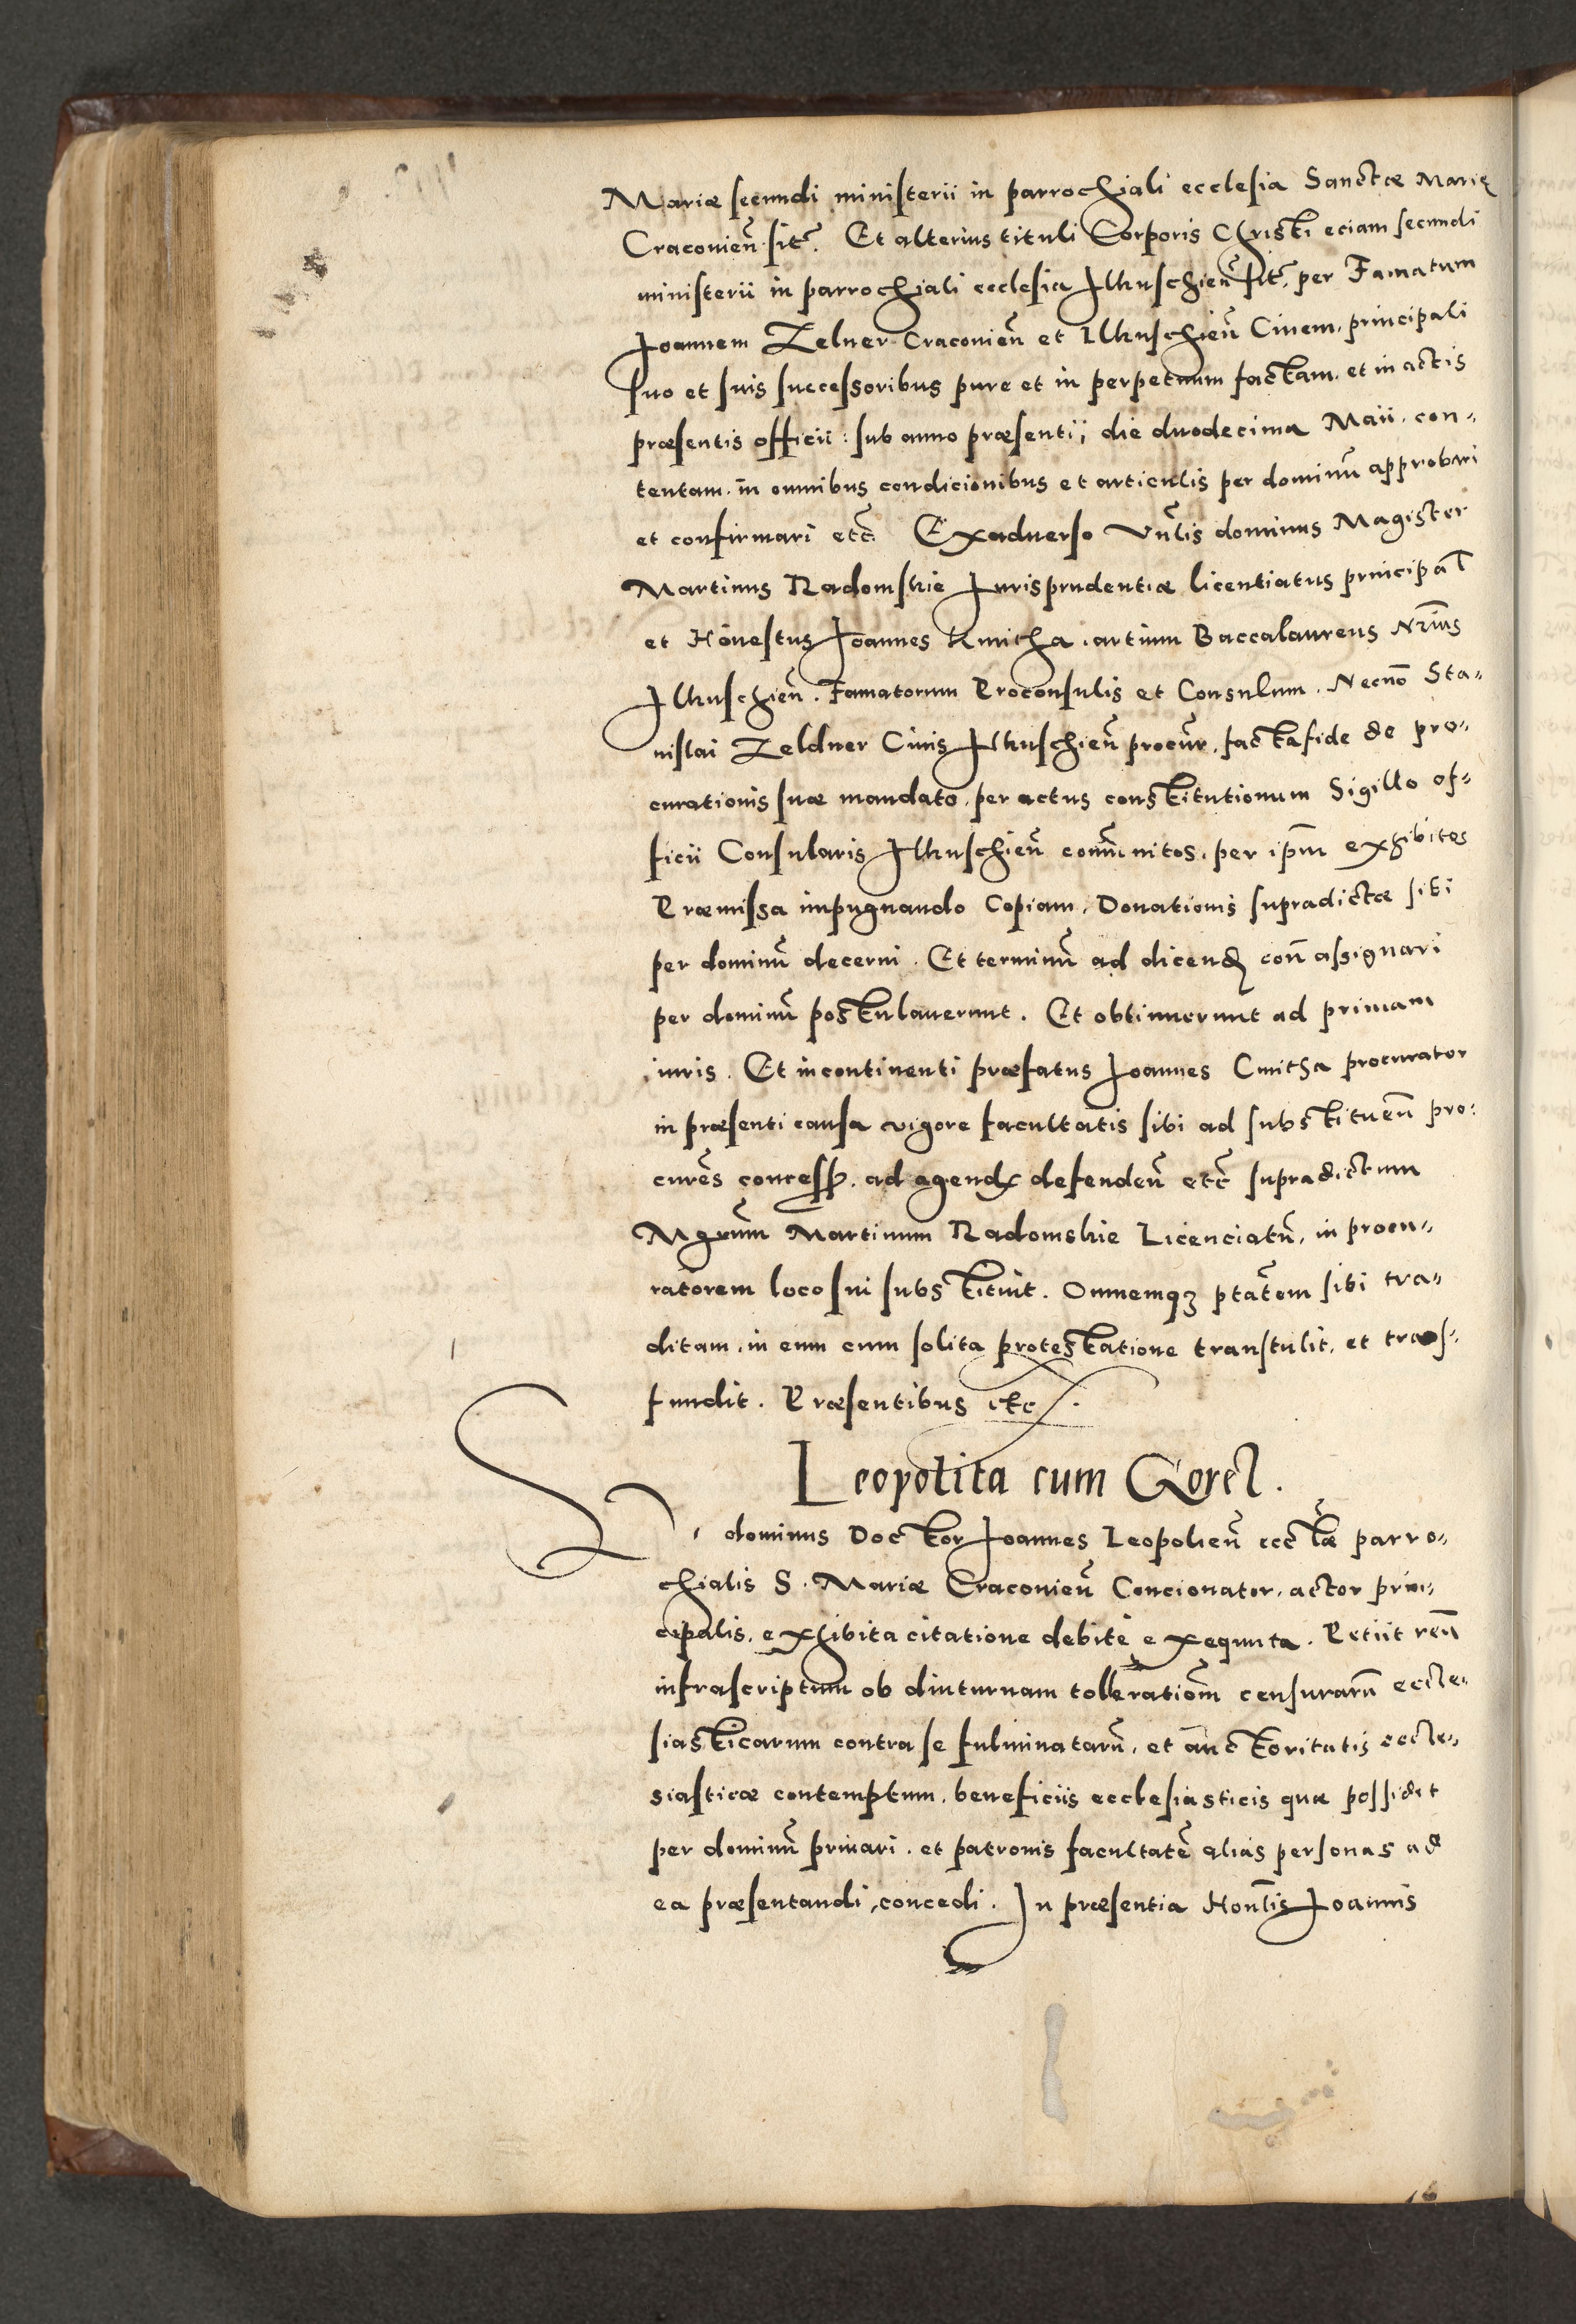 Mariæ secundi ministerii in parrochiali ecclesia Sanctæ Marię
Craconieñ sit̃. Et alterius tituli Corporis Christi eciam secundi
ministerii in parrochiali ecclesia Ilkuschieñ sit̃, per Famatum
Joannem Zelner Craconieñ et Ilkuschieñ Civem, principali
suo et suis successoribus pure et in perpetuum factam, et in actis
præsentis officii: sub anno præsenti, die duodecima Maii, con-
tentam, in omnibus condicionibus et articulis per dominũ approbari
et confirmari etc̃. Exadverso Vnˡis dominus Magister
Martinus Radomskie Jurisprudentiæ licentiatus principał
et Honestus Joannes Kmitha, artium Baccalaureus Nr̃ius
Ilkuschieñ. Famatorum Proconsulis et Consulum. Necnõ Sta-
nislai Zeldner Civis Ilkuschieñ procur̃, facta fide de pro-
curationis suæ mandato, per actus constitutionum Sigillo of-
ficii Consularis Ilkuschieñ com̃unitos, per ip̃m exhibitos
Præmissa impugnando Copiam, Donationis supradictæ sibi
per dominũ decerni. Et terminũ ad dicend coñ assignari
per dominũ postulaverunt. Et obtinuerunt ad primam
iuris. Et incontinenti præfatus Joannes Cmitha procurator
in præsenti causa vigore facultatis sibi ad substitueñ pro-
cur̃es concess, ad agend defendeñ etc̃ supradictum
Mgr̃um Martinum Radomskie Licenciatũ, in procu-
ratorem loco sui substituit. Omnemq3 ptãtem sibi tra-
ditam, in eum cum solita protestatione transtulit, et trans-
fundit. Præsentibus etc.
Leopolita cum Gorel.
dominus Doctor Joannes Leopolieñ eccł̃æ parro-
chialis S. Mariæ Craconieñ Concionator, actor prin-
cipalis, exhibita citatione debitè exequuta. Petiit reũ
infrascriptum ob diuturnam tollerationẽm censurarũ eccle-
siasticarum contra se fulminatarũ, et auctoritatis eccle-
siasticæ contemptum, beneficiis ecclesiasticis quæ possidet
per dominũ privari, et patronis facultatẽ alias personas ad
ea præsentandi, concedi. In præsentia Honˡ̃is Joannis